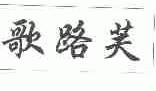 歌路芙